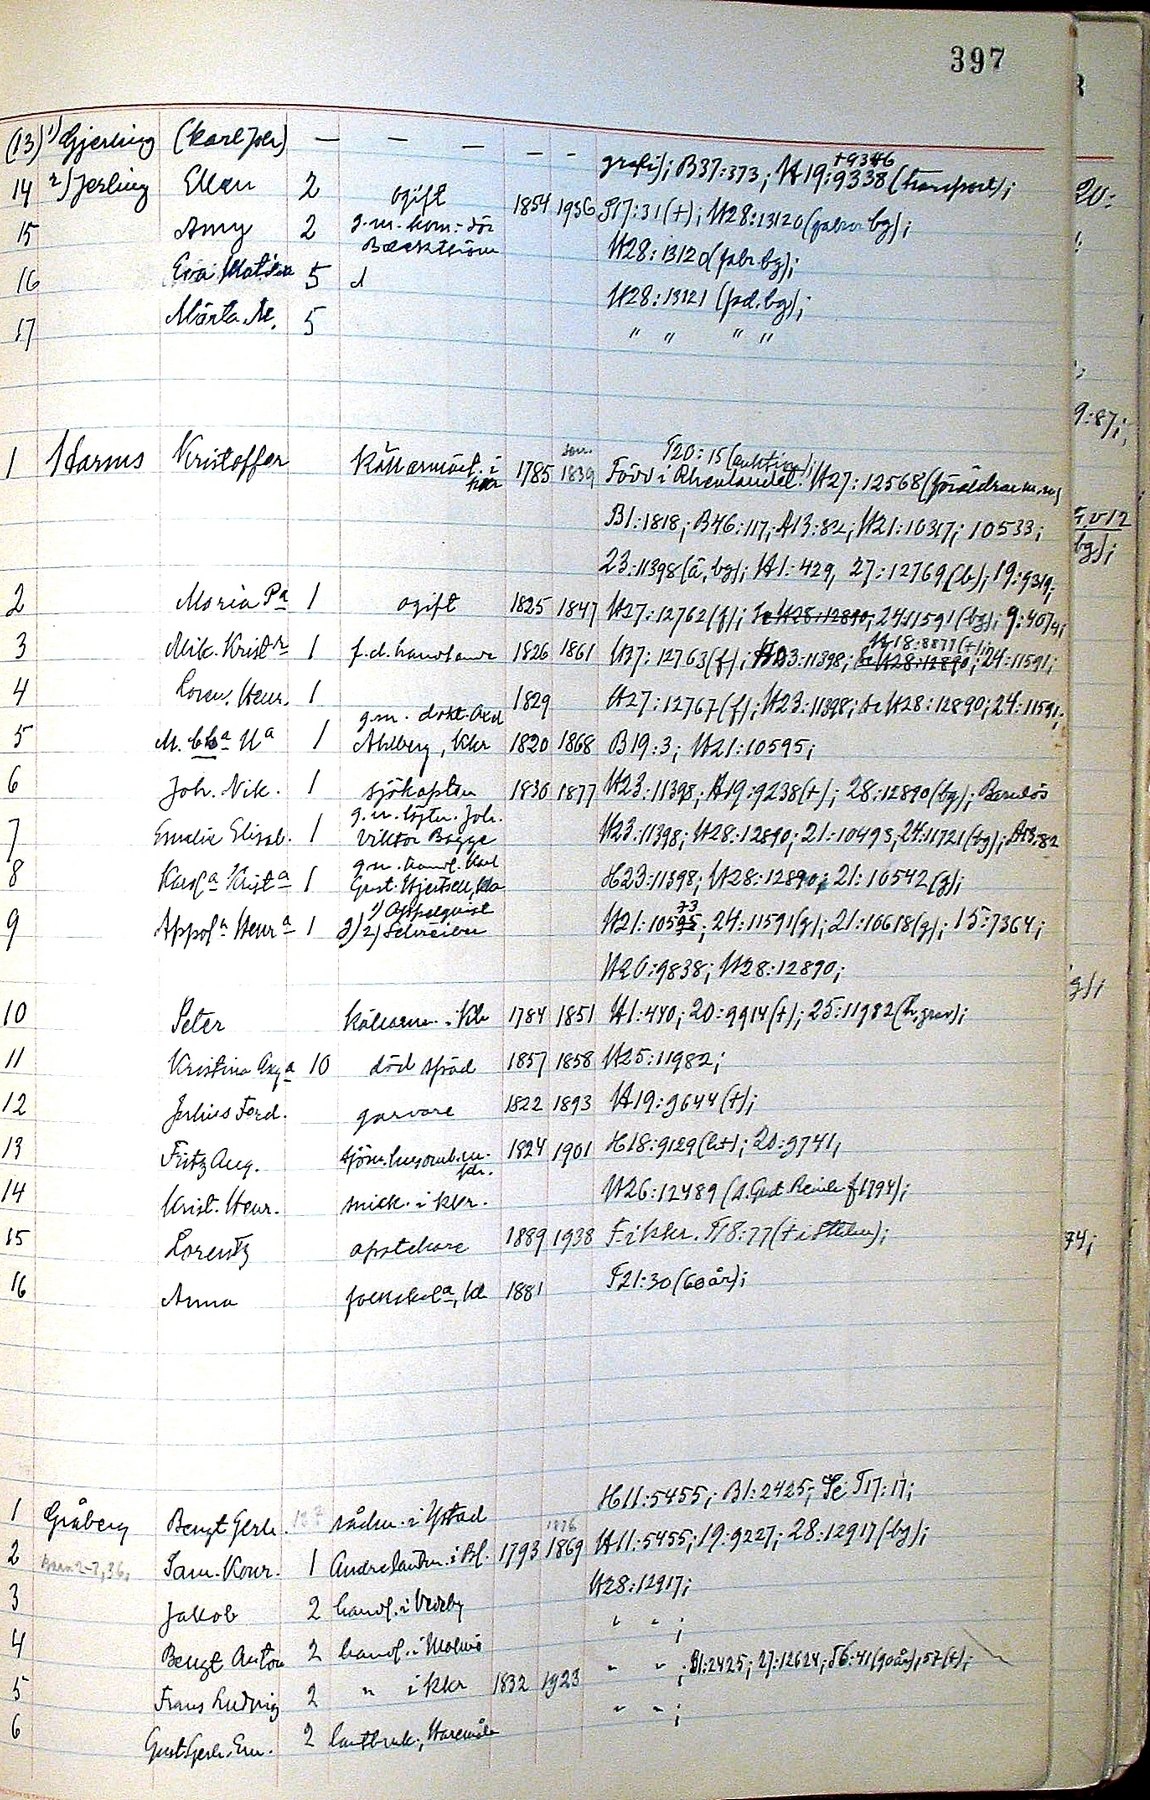 397
(13) 1) Gjerling (Karl Joh) — — — — - grafi); B37:373; H19:9338 +9346 (transport);
14 2) Jerling Ellen 2 ogift 1854 1936 S17:31(+); H28:13120 (fabr. bg);
15 Amy 2 g.m. kom:-dör Beckström H28:13120 (fabr. bg);
16 Eva Matilda 5 d H28:13121 (fd. bg);
17 Märta M. 5 " " " "
1 Harms Kristoffer Källarmäst. i Kkr 1785 1839 T20:15 (auktion);
Född i Rhenlandet. H27:12568 (föräldrar m.m)
B1:1818; B46:117; A13:82; H21:10317; 10533;
23:11398 (ä, bg); H1:429, 27:12769 (b); 19:9319;
2 Maria Pa 1 ogift 1825 1847 H27:12762 (f); Se H28:12890; 24:11591 (bg); 9:4074;
3 Nik. Kristr 1 f.d. handlande 1826 1861 H27:12763 (f); H23:11398; H18:8877 (+) Se H28:12890; 24:11591;
4 Loren. Henr. 1 1829 H27:12767 (f); H23:11398; Se H28:12890; 24:11591;
5 M. Ha 1 g.m. dokt. Axel Ahlberg, Kkr 1820 1868 B19:3; H21:10595;
6 Joh. Nik. 1 sjökapten 1830 1877 H23:11398, H19:9238 (+); 28:12890 (bg); Barnlös
7 Emelie Elisab. 1 g.m. löjtn. Joh. Viktor Bagge H23:11398; H28:12890; 21:10493; 24:11721 (bg); A13:82
8 Karola Krista 1 g.m. handl. Karl Gust. Hjertsell, Kka H23:11398; H28:12890; 21:10542 (g);
9 Appola Henra 1 1) Appelquist 2) Schreiber H21:10595 73; 24:11591 (g); 21:10618 (g); 15:7364;
H20:9838; H28:12890;
10 Peter källarm. i Kkr 1784 1851 H1:440; 20:9914 (+); 25:11982 (h, grav);
11 Kristina 10 död späd 1857 1858 H25:11982;
12 Julius Ferd. garvare 1822 1893 H19:9644 (+);
13 Fritz Aug. Kkr. 1824 1901 H18:9129 (h+); 20:9741,
14 Krist. Henr. snick. i kkr. H26:12489 (s. Gust Reinh f 1794);
15 Lorentz apotekare 1889 1938 F. i kkr. T18:77 (+ i Sthlm);
16 Anna folkskola, Kk 1881 T21:30 (60 år);
1 Gråberg Bengt Gerh. rådm. i Ystad H11:5455; B1:2425; Se T17:17;
2 Barn 2-7, 36, Sam. Konr. 1 Andre lantm. i Bl. 1793 1869 1876 H11:5455; 19:9227; 28:12917 (bg);
3 Jakob 2 handl. i Vedeby H28:12917;
4 Bengt Anton 2 handl. i Malmö " " ;
5 Frans Ludvig 2 " i kkr 1832 1923 " " ; B1:2425; 27:12624; S6:41 (90 år); 57 (+);
6 Gust. Gerh. Em. 2 lantbruk., Haremåla " " ;